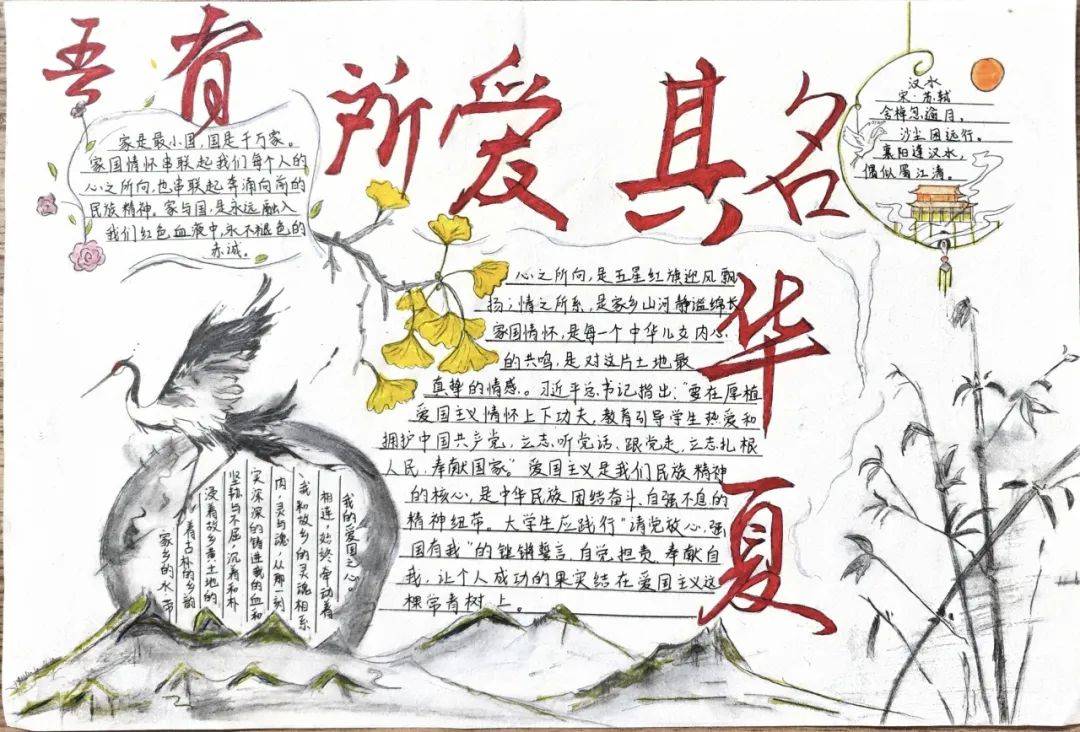 吾有所爱其名
华夏
家是最小国,国是千万家。
家国情怀串联起我们每个人的
心之所向,也串联起奔涌向前的
民族精神。家与国,是永远融入
我们红色血液中,永不褪色的
赤诚。
汉水
宋·苏轼
舍棹忽逾月,
沙尘困远行。
襄阳逢汉水,
偶似蜀江清。
心之所向,是五星红旗迎风飘
扬;情之所系,是家乡山河静谧绵长
家国情怀,是每一个中华儿女内心
的共鸣,是对这片土地最
真挚的情感。习近平总书记指出:“要在厚植
爱国主义情怀上下功夫,教育引导学生热爱和
拥护中国共产党,立志听党话、跟党走,立志扎根
人民,奉献国家。”爱国主义是我们民族精神
的核心,是中华民族团结奋斗、自强不息的
精神纽带。大学生应践行“请党放心,强
国有我”的铿锵誓言,自觉担责,奉献自
我,让个人成功的果实结在爱国主义这
棵常青树上。
家乡的水,带
着古朴的乡韵
浸着故乡黄土地的
坚韧与不屈,沉着和朴
实深深的铸进我的血和
肉,灵与魂,从那一刻
,我和故乡的灵魂相系
相连,始终牵动着
我的爱国之心。